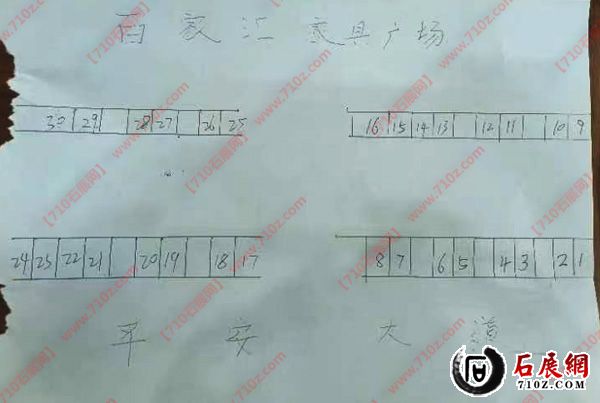 百家汇家具广场
30 29 28 27 26 25
16 15 14 13 12 11 10 9
24 23 22 21 20 19 18 17
8 7 6 5 4 3 2 1
平安大道
【710石展网】www.710z.com
石展網
710Z.COM